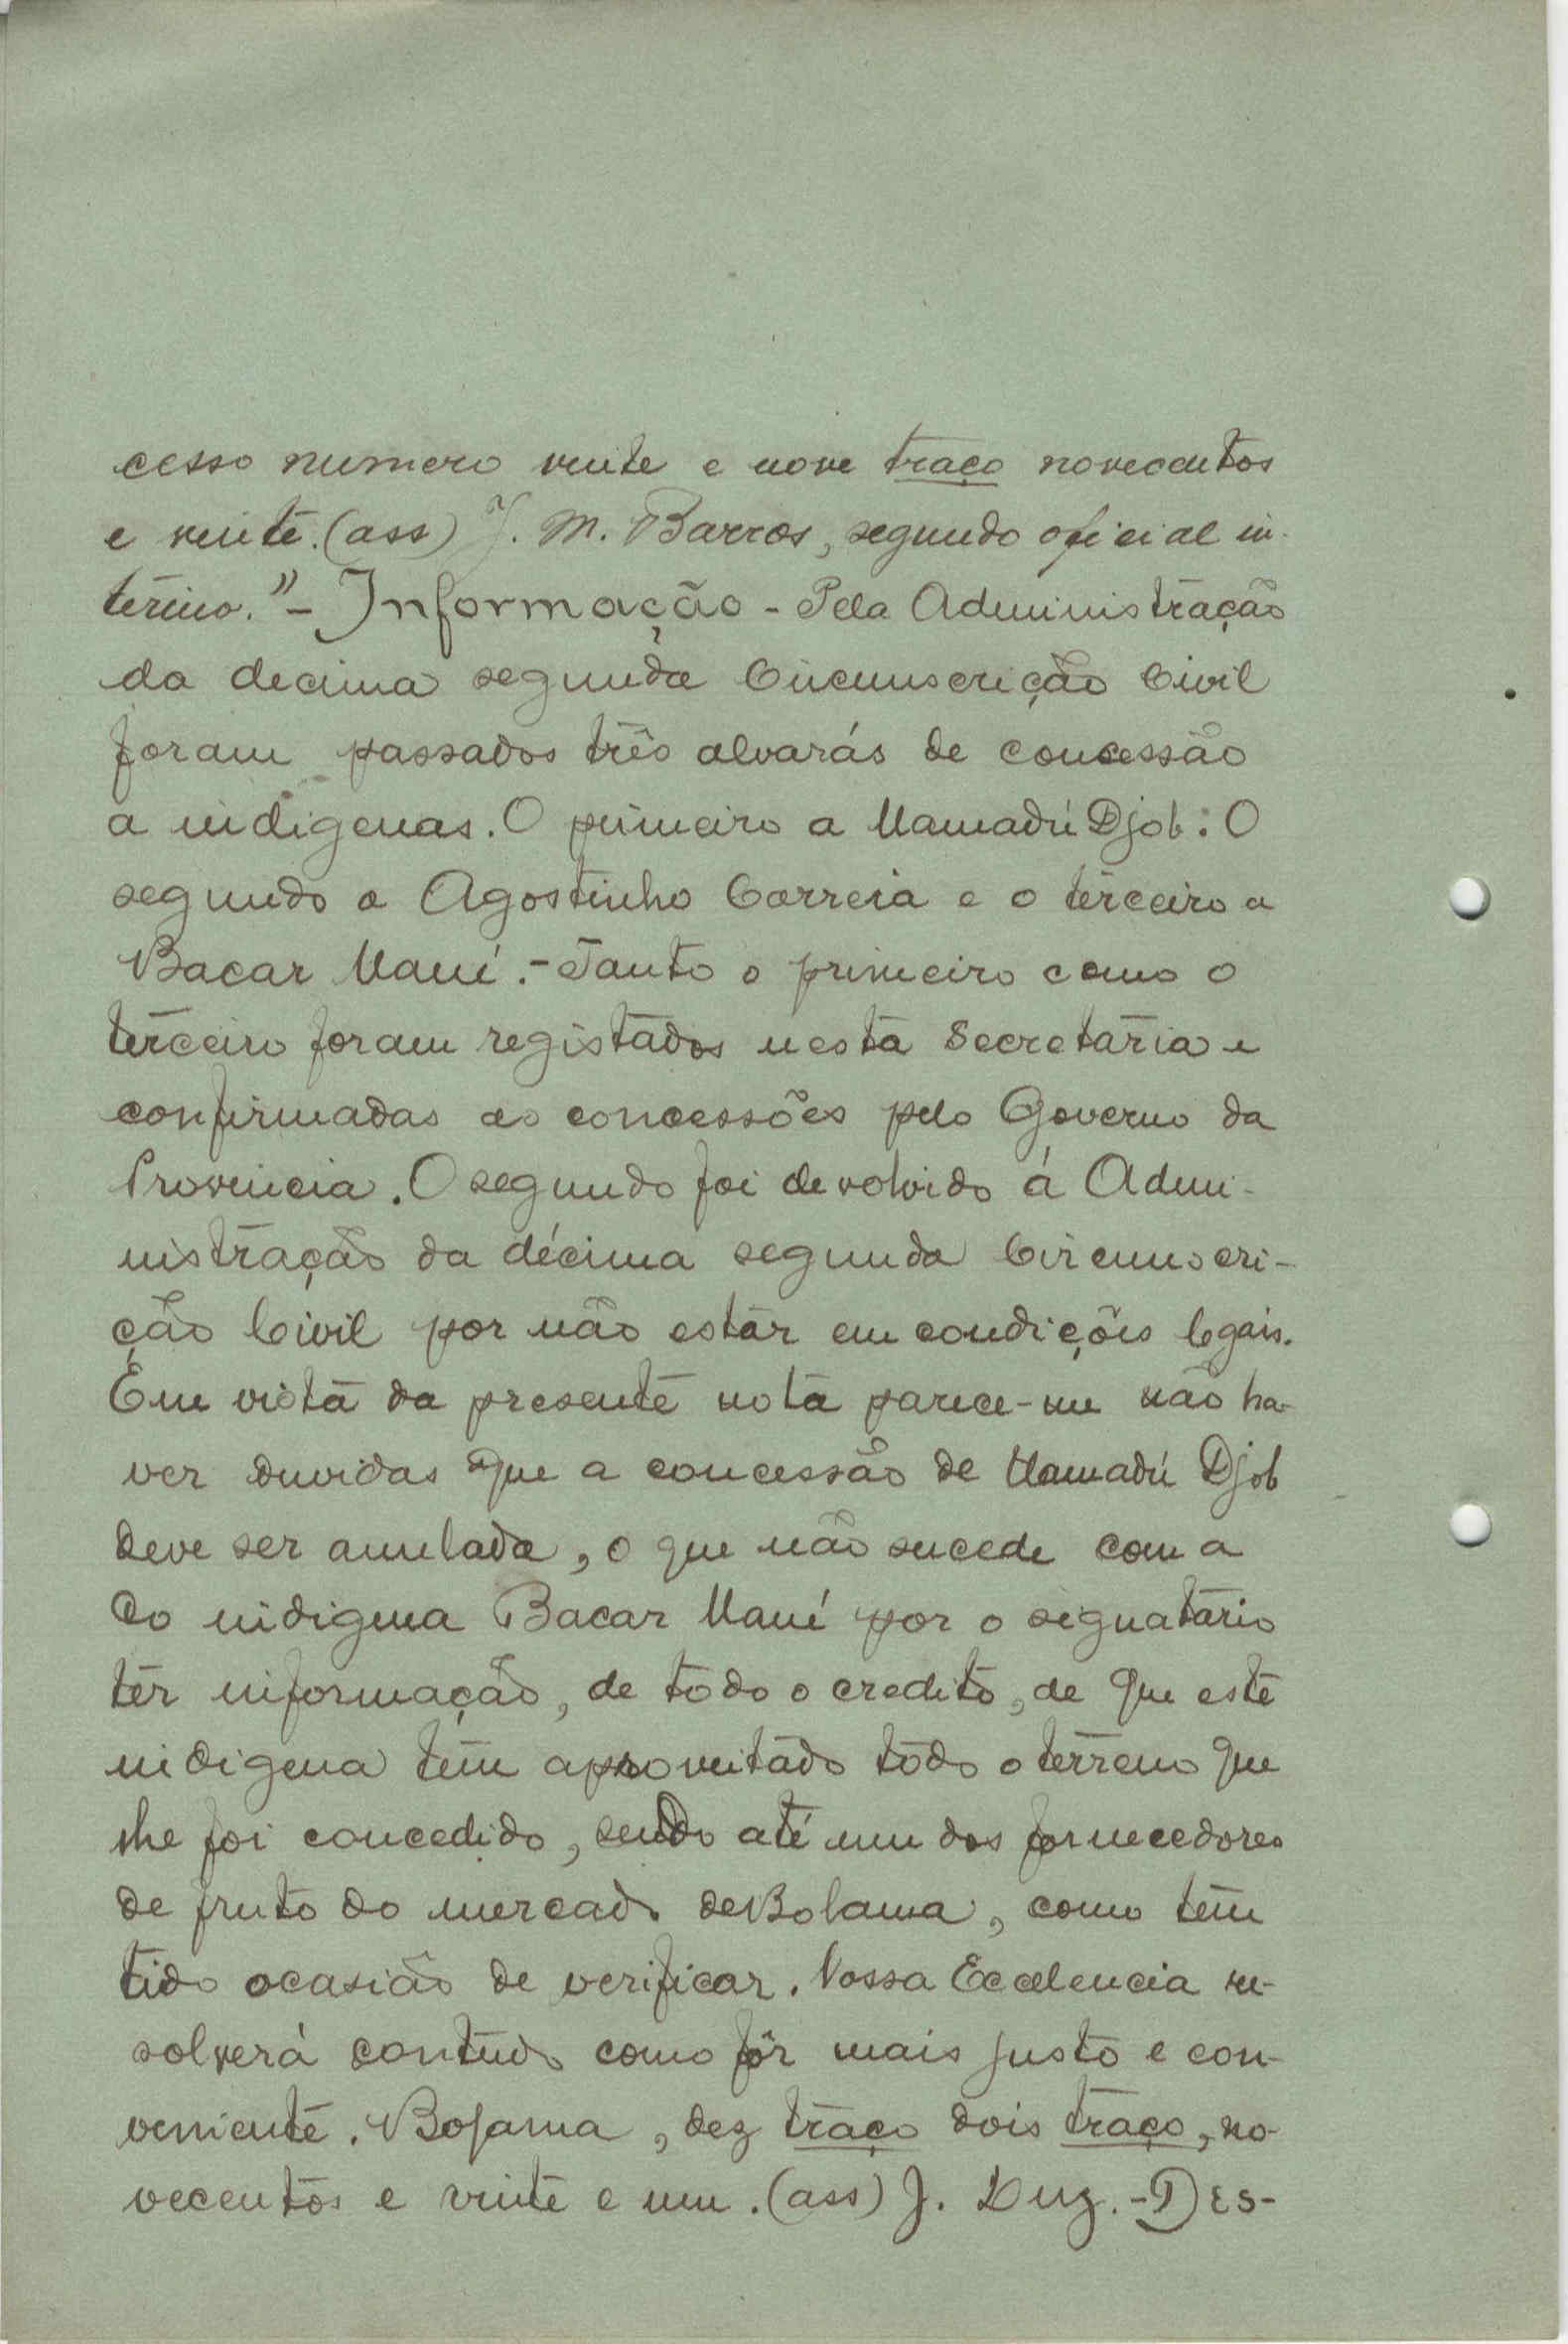 cesso numero vinte e nove traço novecentos
e vinte. (ass) J. M. Barros, segundo oficial in-
terino." - Informação - Pela Administração
da decima segunda Circunscrição Civil
foram passados três alvarás de concessão
a indigenas. O primeiro a Mamadú Djob: O
segundo a Agostinho Correia e o terceiro a
Bacar Mané. - Tanto o primeiro como o
terceiro foram registados nesta Secretaria e
confirmadas as concessões pelo Governo da
Provincia. O segundo foi devolvido á Admi-
nistração da décima segunda Circunscri-
ção Civil por não estar em condições legais.
Em vista da presente nota parece-me não ha-
ver duvidas que a concessão de Mamadú Djob
deve ser anulada, o que não sucede com a
do indigena Bacar Mané por o signatario
ter informação, de todo o credito, de que este
indigena têm aproveitado todo o terreno que
lhe foi concedido, sendo até um dos fornecedores
de fruto do mercado de Bolama, como têm
tido ocasião de verificar. Vossa Excelencia re-
solverá contudo como fôr mais justo e con-
veniente. Bolama, dez traço dois traço, no-
vecentos e vinte e um. (ass) J. Duz. - Des-